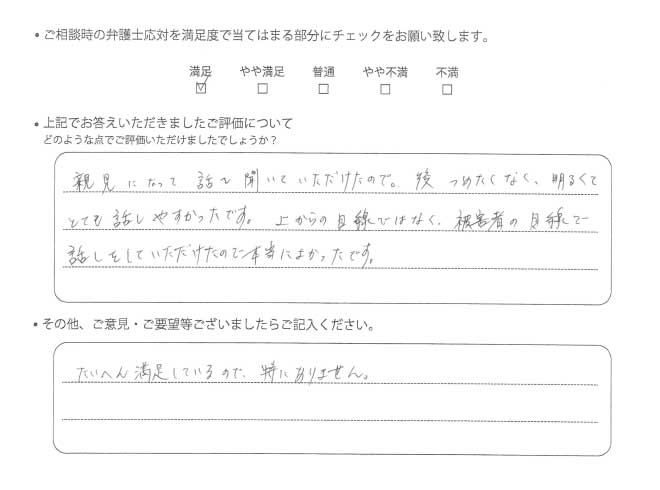 • ご相談時の弁護士応対を満足度で当てはまる部分にチェックをお願い致します。
満足 やや満足 普通 やや不満 不満
☑ □ □ □ □
• 上記でお答えいただきましたご評価について
どのような点でご評価いただけましたでしょうか?
親見になって 話を 聞いていただけたので。後 つめたくなく、明るくて
とても 話しやすかったです。 上からの目線ではなく、被害者の目線で
話しをしていただけたので本当によかったです。
• その他、ご意見・ご要望等ございましたらご記入ください。
たいへん満足しているので、特にありません。